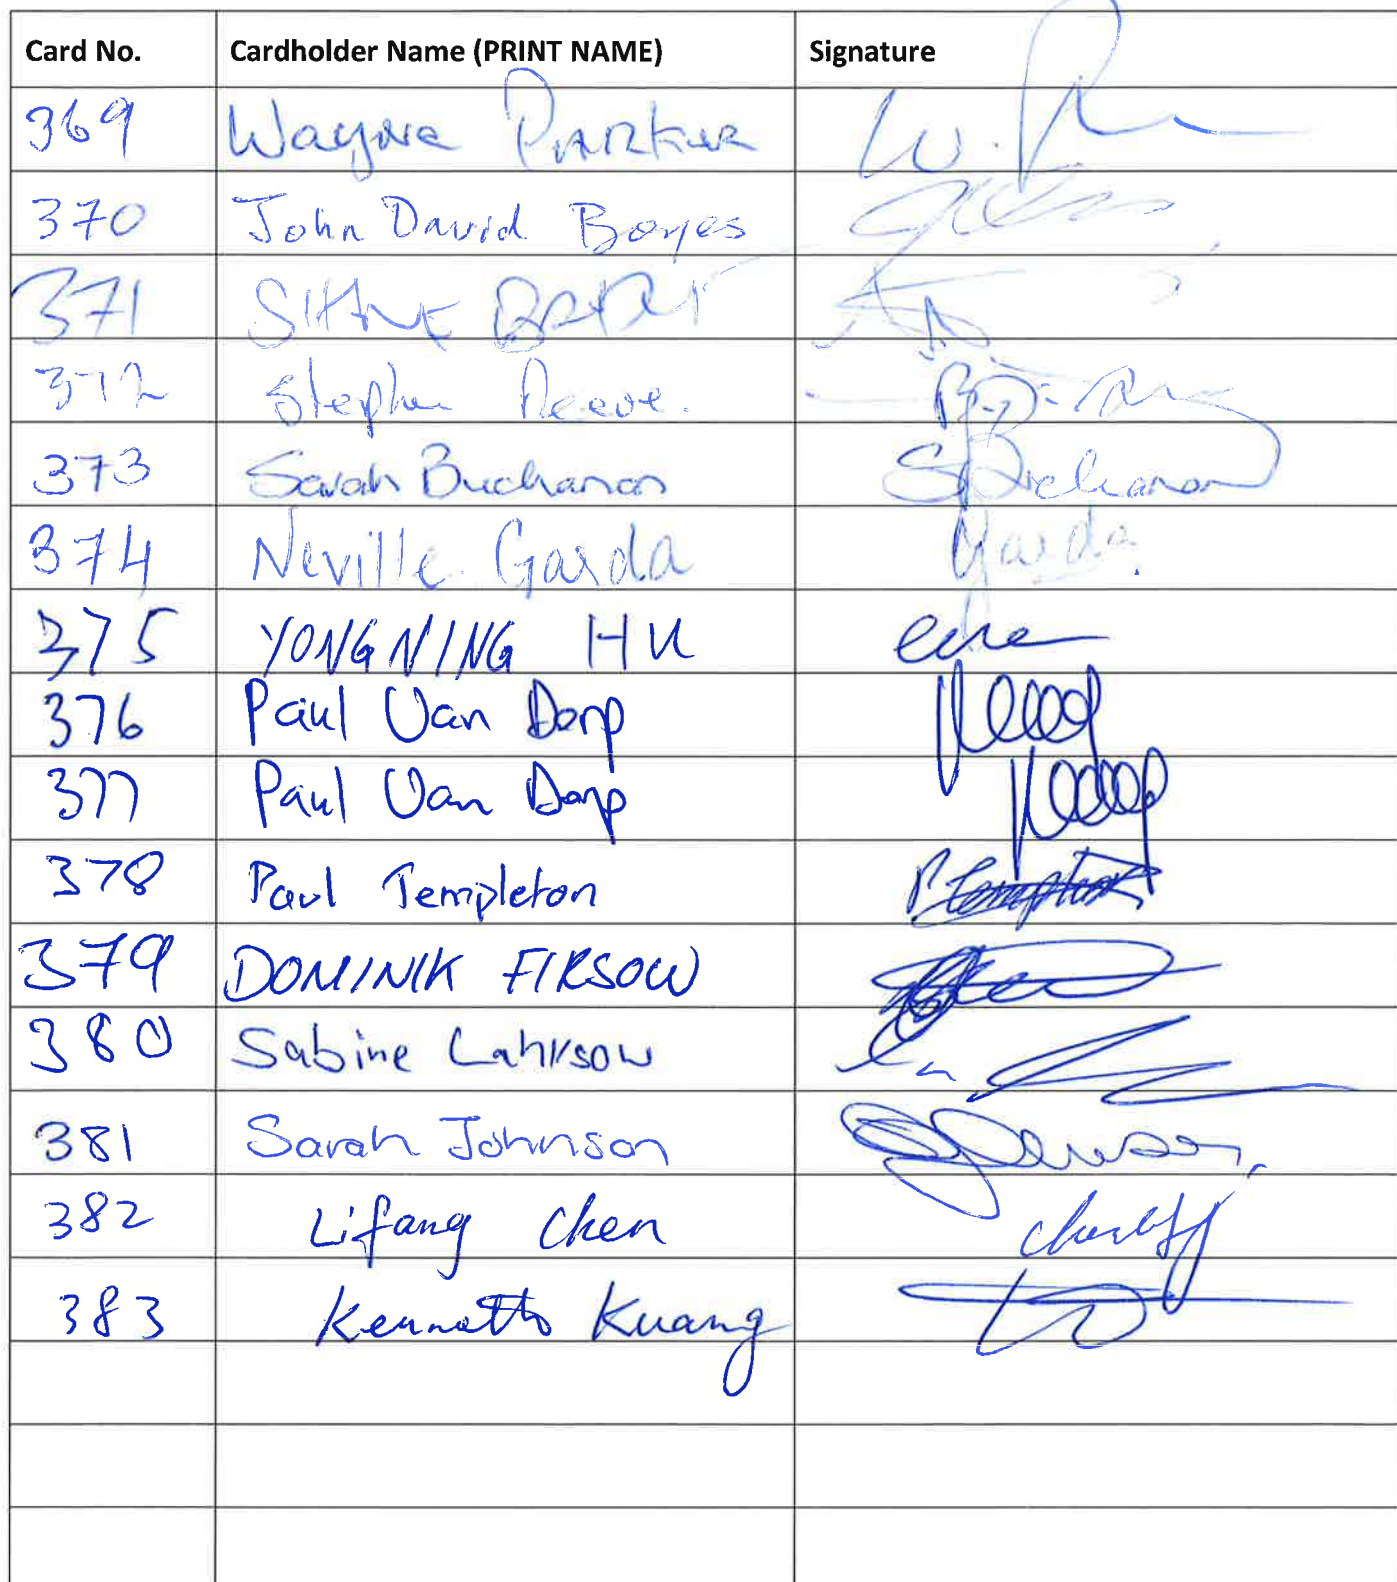 Card No. Cardholder Name (PRINT NAME) Signature
369 Wayne Parker W. P
370 John David Boyes
371 SHANE
372 Stephen Reeve.
373 Sarah Buchanan SBuchanan
374 Neville Garda Garda.
375 YONGNING HU
376 Paul Van Dorp
377 Paul Van Dorp
378 Paul Templeton P Templeton
379 DOMINIK FIRSOW
380 Sabine
381 Sarah Johnson
382 Lifang Chen
383 Kenneth Kuang